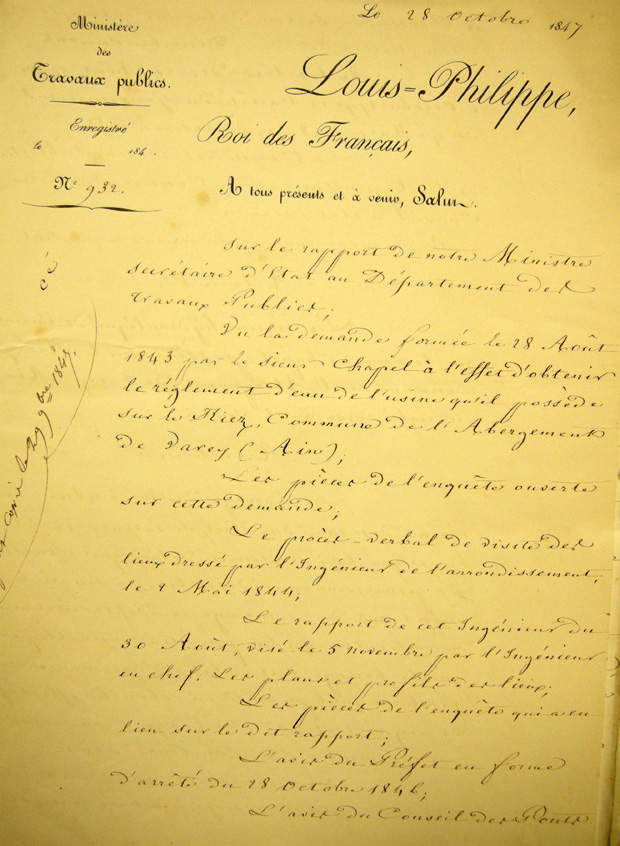 Le 28 Octobre 1847
Ministère
des
Travaux publics.
Enregistré
le 184 .
N° 932.
Louis=Philippe,
Roi des Français,
A tous présents et à venir, Salut.
Sur le rapport de notre Ministre
secrétaire d'Etat au Département des
Travaux Publics;
Vu la demande formée le 28 Août
1843 par le sieur Chapel à l'effet d'obtenir
le réglement d'eau de l'usine qu'il possède
sur le Riez, Commune de l'Abergement
de Varey (Ain);
Les pièces de l'enquête ouverte
sur cette demande;
Le procès-verbal de visite des
lieux dressé par l'Ingénieur de l'arrondissement,
le 2 Mai 1844;
Le rapport de cet Ingénieur du
30 Août, visé le 5 novembre par l'Ingénieur
en chef. Les plans et profils des lieux;
Les pièces de l'enquête qui a eu
lieu sur le dit rapport;
L'avis du Préfet en forme
d'arrêté du 28 Octobre 1846;
L'avis du Conseil des Ponts
copié le 29 9bre 1847.